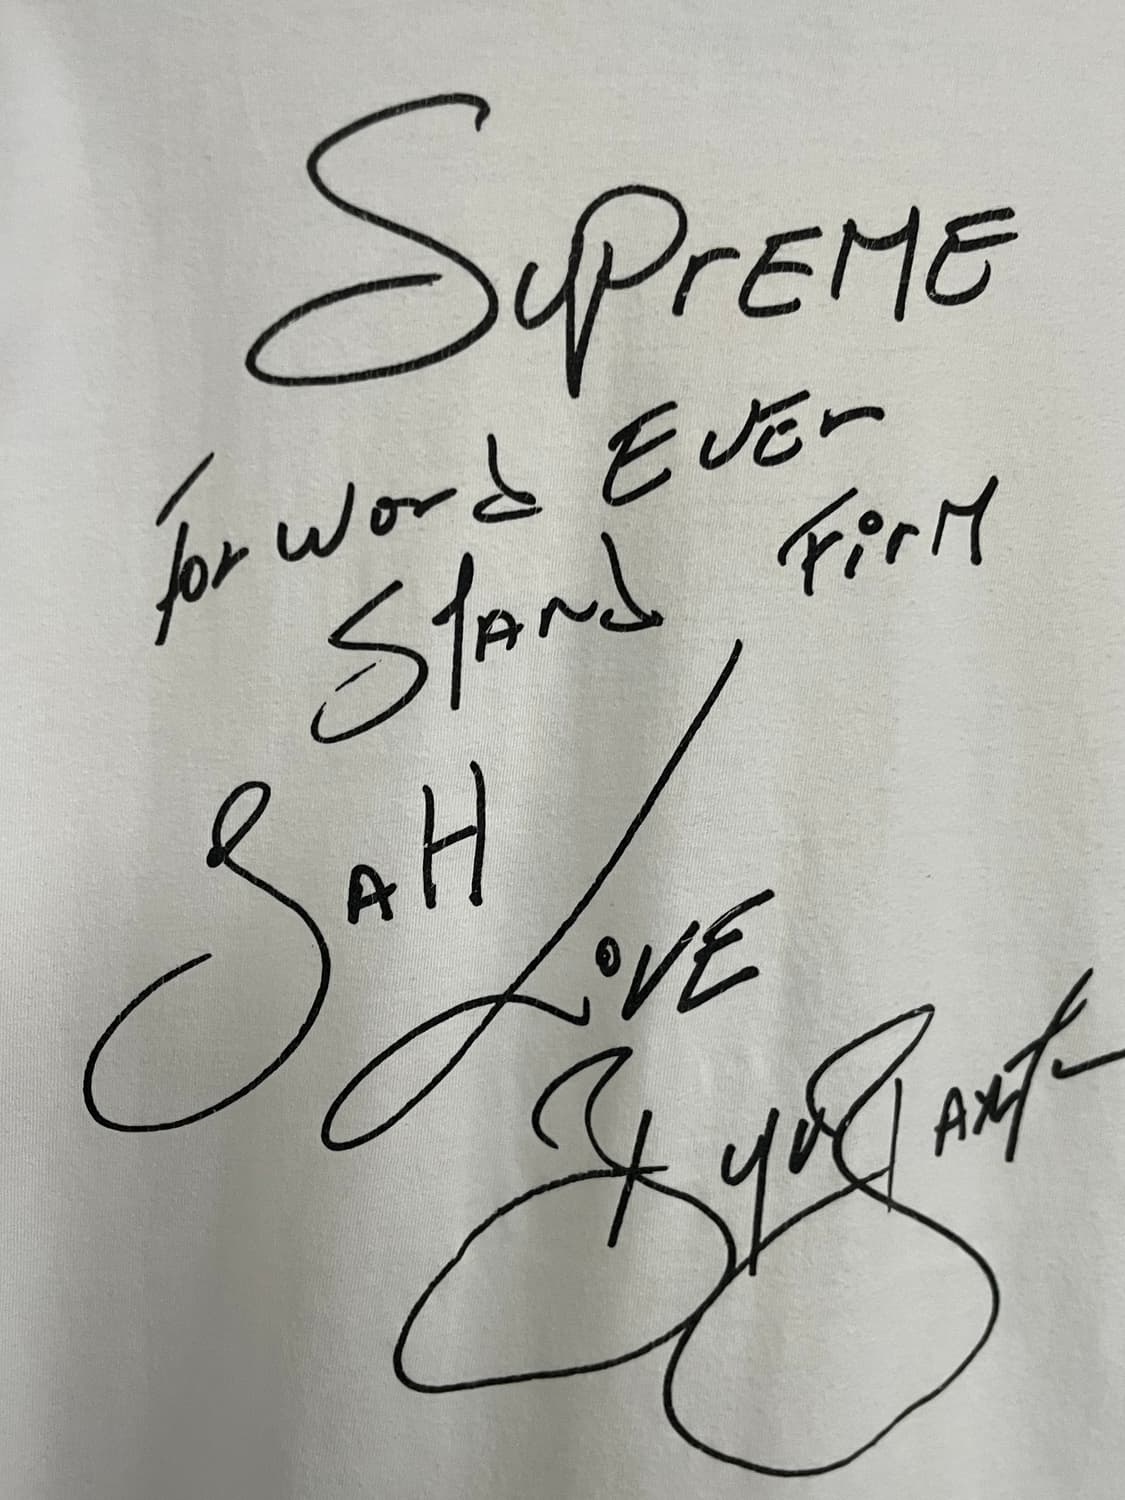 SuPrEME
ForWord EVEr
STANd FirM
JAH
LOVE
Buju BANTON